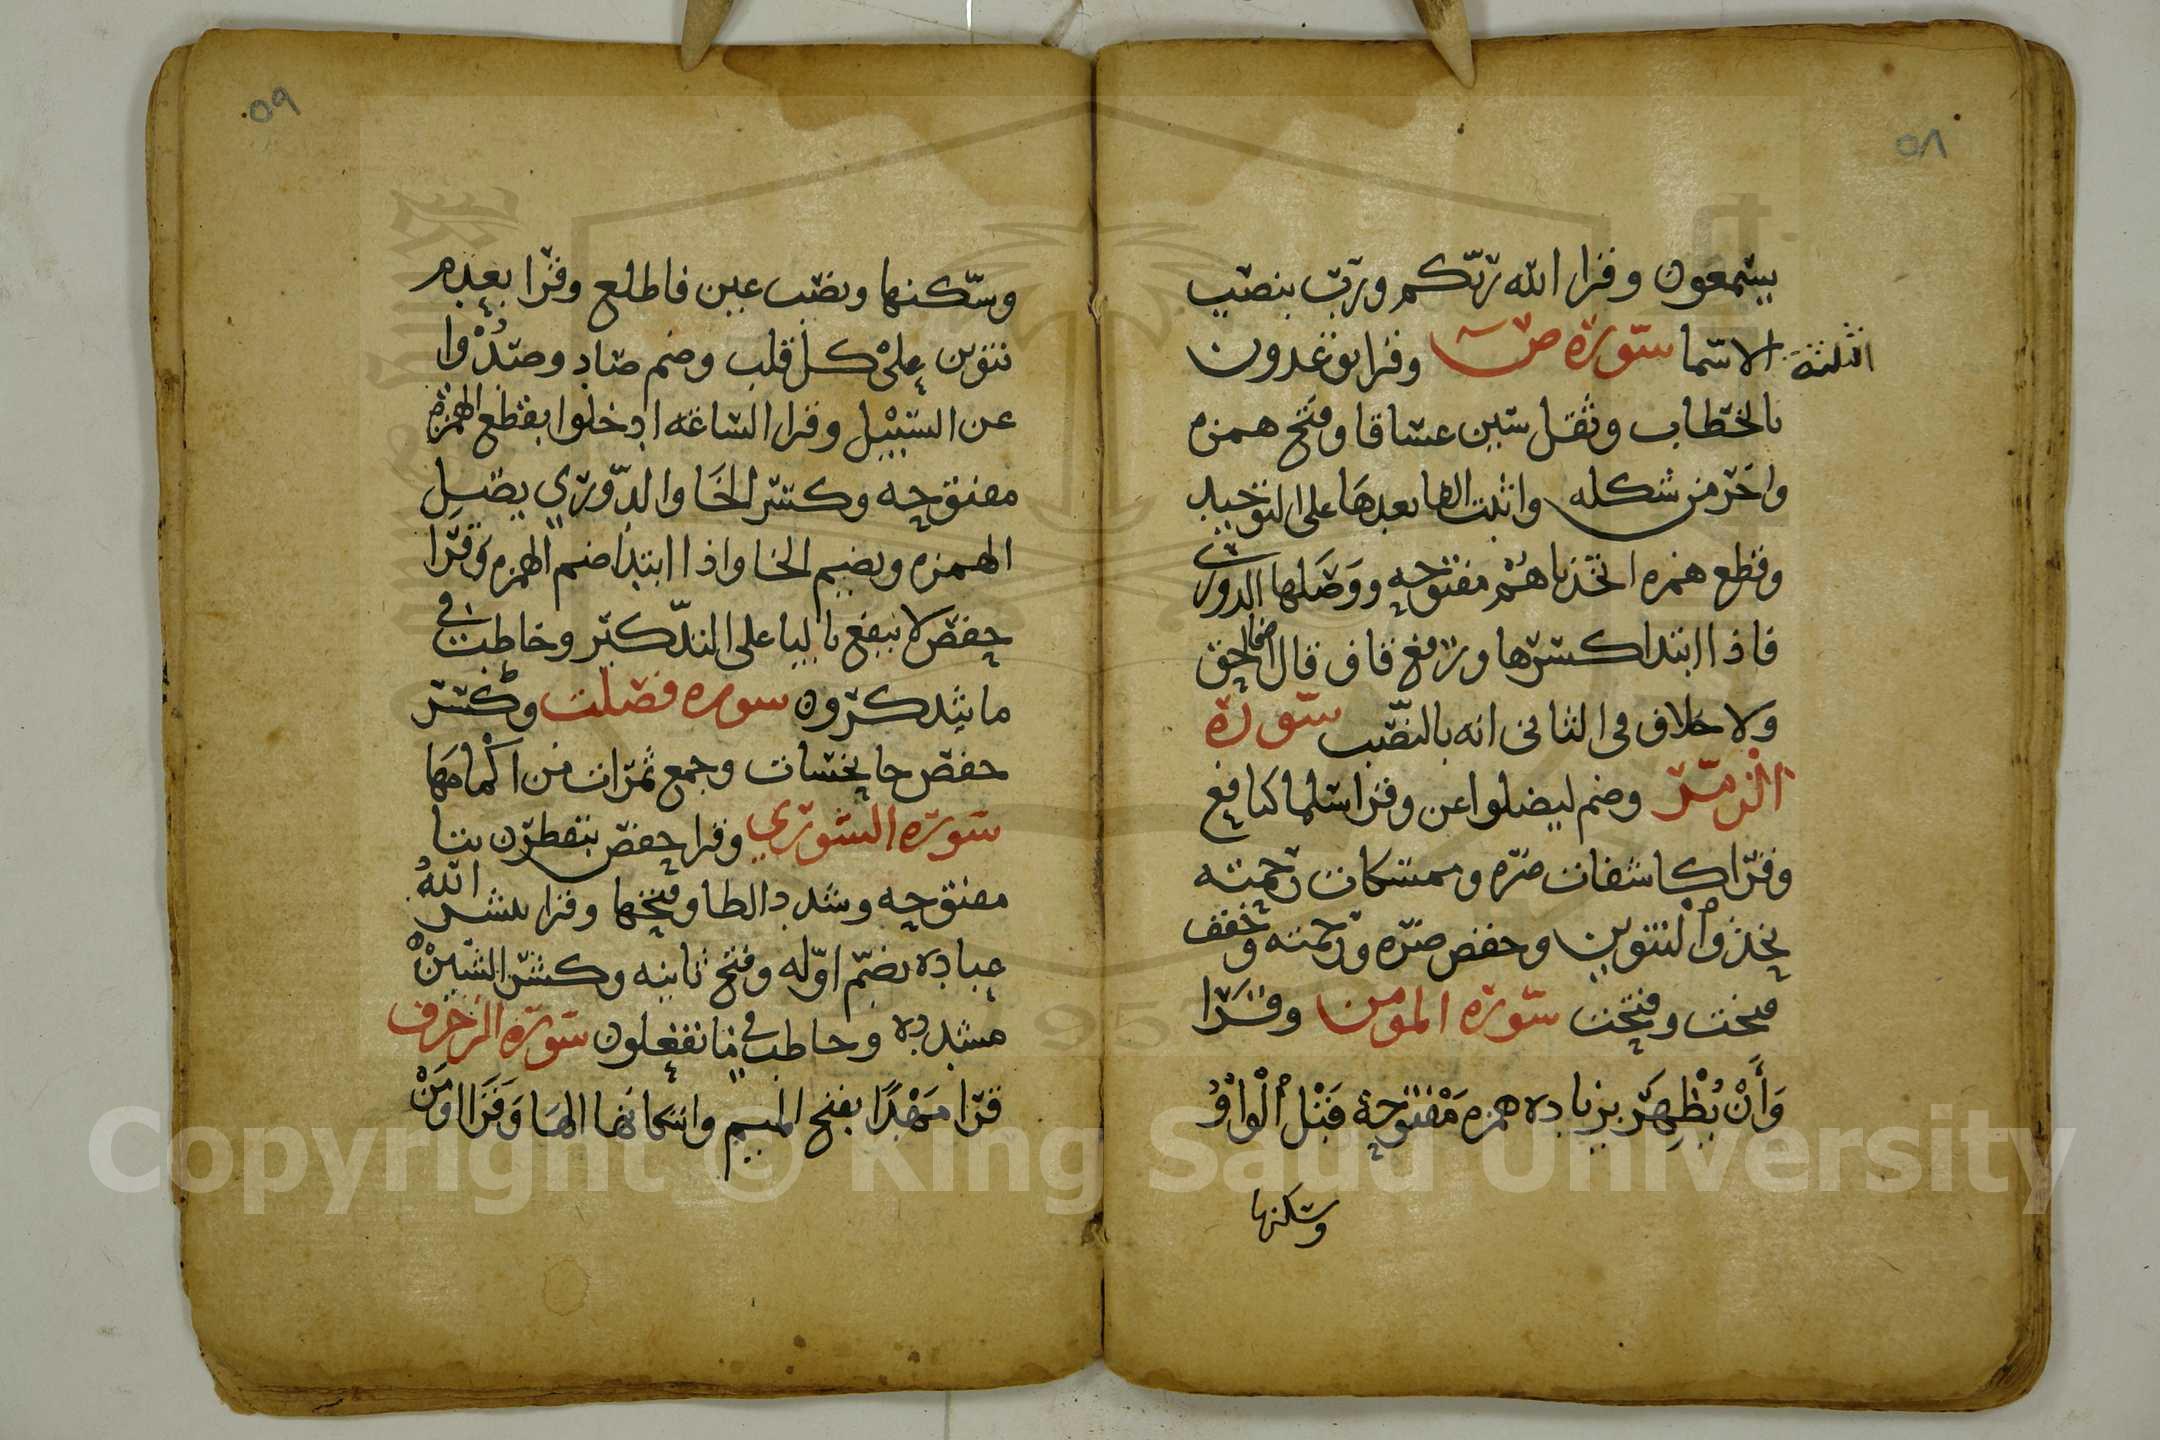 ٥٨
يسمعون وقرا الله ربكم ورب بنصب
الثلثة
الاسما سورة ص وقرا توعدون
بالخطاب وثقل سين غساقا وفتح همزه
واخر من شكله واثبت الها بعدها على التوحيد
وقطع همزه اتخذناهم مفتوحه ووصلها الدوري
فاذا ابتدا كسرها ورفع قاف قال فالحق
ولا خلاف في الثاني انه بالنصب سورة
الزمر وضم ليضلوا عن وقرا سلما كنافع
وقرا كاشفات ضره وممسكات رحمته
بحذف التنوين وحفض ضره ورحمته وخفف
فتحت وفتحت سورة المومن وقرا
وَأَنْ يُظْهِرَ بزياده همزه مفتوحة قبل الواو
وسكنها
٥٩
وسكنها ونصب عين فاطلع وقرا بعدم
تنوين على كل قلب وضم صاد وصُدُّوا
عن السبيل وقرا الساعه ادخلوا بقطع الهمزه
مفتوحه وكسر الخا والدوري يصل
الهمزه ويضم الخا واذا ابتدا ضم الهمزه وقرا
حفص لا ينفع باليا على التذكير وخاطب في
ما يتذكرون سوره فصلت وكسر
حفص حا نحسات وجمع ثمرات من اكمامها
سورة الشوري وقرا حفص يتفطرن بتا
مفتوحه وشدد الطا وفتحها وقرا يبشر اللهُ
عباده بضم اوله وفتح ثانيه وكسر الشين
مشدده وخاطب في ما تفعلون سورة الزخرف
قرا مَهْدًا بفتح الميم واسكانها الها وَقَرَا اومَنْ
Copyright © King Saud University